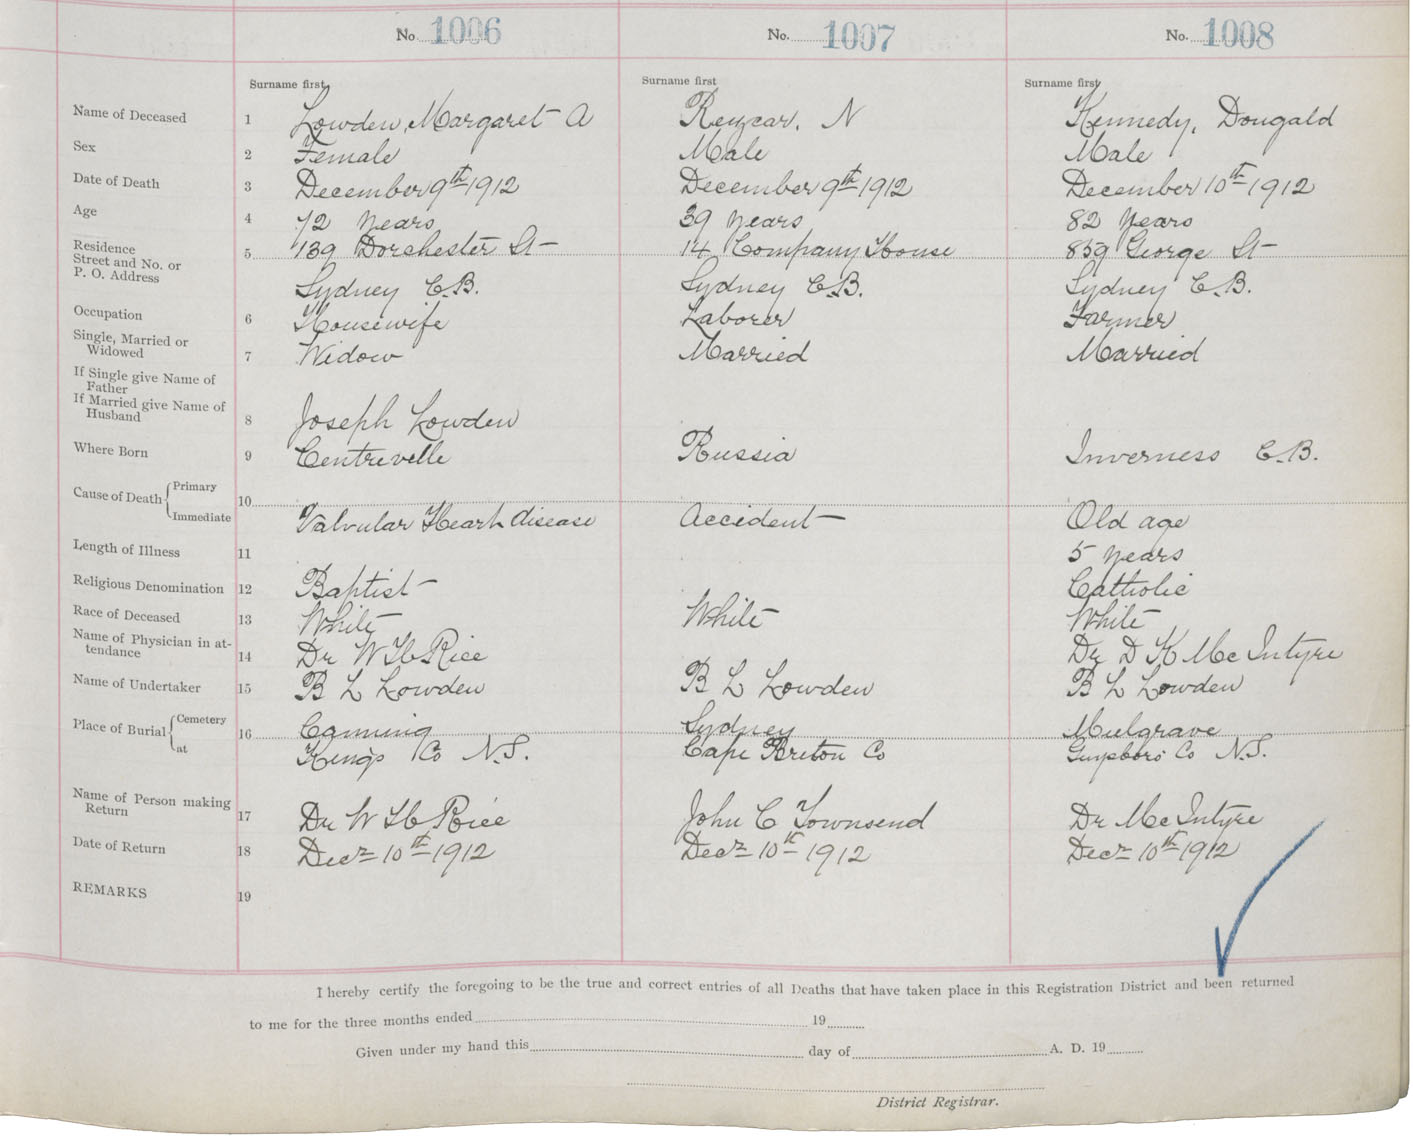 No. 1006 No. 1007 No. 1008
Surname first Surname first Surname first
Name of Deceased 1 Lowden, Margaret A Reyzcar, N Kennedy, Dougald
Sex 2 Female Male Male
Date of Death 3 December 9th 1912 December 9th 1912 December 10th 1912
Age 4 72 years 39 years 82 years
Residence
Street and No. or 5 139 Dorchester St 14 Company House 859 George St
P. O. Address
Sydney C.B. Sydney C.B. Sydney C.B.
Occupation 6 Housewife Laborer Farmer
Single, Married or
Widowed 7 Widow Married Married
If Single give Name of
Father
If Married give Name of
Husband 8 Joseph Lowden
Where Born 9 Centrevelle Russia Inverness C.B.
Cause of Death Primary 10
Immediate Valvular Heart disease Accident Old age
Length of Illness 11 5 years
Religious Denomination 12 Baptist Cattholic
Race of Deceased 13 White White White
Name of Physician in at-
tendance 14 Dr W H Rice Dr D K McIntyre
Name of Undertaker 15 B L Lowden B L Lowden B L Lowden
Place of Burial Cemetery 16 Canning Sydney Mulgrave
at Kings Co N.S. Cape Breton Co Guysboro Co N.S.
Name of Person making
Return 17 Dr W H Rice John C Townsend Dr McIntyre
Date of Return 18 Decr 10th 1912 Decr 10th 1912 Decr 10th 1912
REMARKS 19
I hereby certify the foregoing to be the true and correct entries of all Deaths that have taken place in this Registration District and been returned
to me for the three months ended 19
Given under my hand this day of A. D. 19
District Registrar.